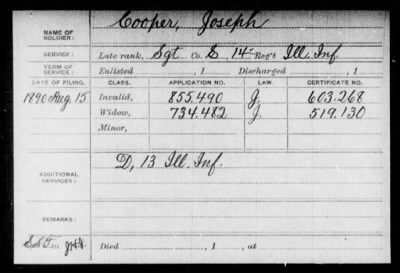 Cooper, Joseph
NAME OF SOLDIER:
SERVICE: Late rank, Sgt Co. E, 14 Reg't Ill. Inf
TERM OF SERVICE: Enlisted , 1 Discharged , 1
DATE OF FILING. CLASS. APPLICATION NO. LAW. CERTIFICATE NO.
1890 Aug. 15 Invalid, 855.490 J. 603.268
Widow, 734.482 J. 519.130
Minor,
D, 13 Ill. Inf.
ADDITIONAL SERVICES:
REMARKS:
Died , 1 , at